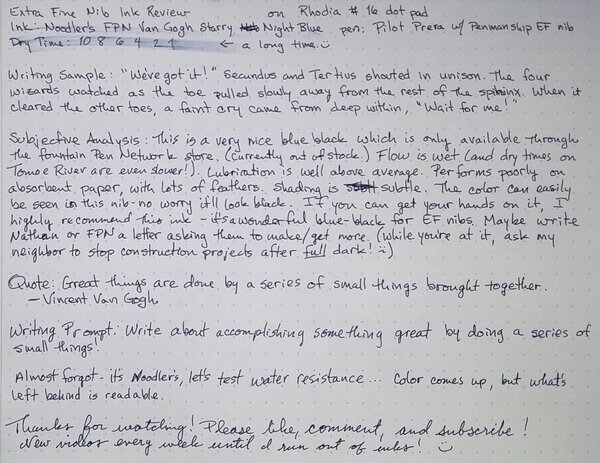 Extra Fine Nib Ink Review on Rhodia # 16 dot pad
Ink: Noodler's FPN Van Gogh Starry Night Blue pen: Pilot Prera w/ Penmanship EF nib
Dry Time: 10 8 6 4 2 1 ← a long time.
Writing Sample: "We've got it!" Secundus and Tertius shouted in unison. The four
wizards watched as the toe pulled slowly away from the rest of the sphinx. When it
cleared the other toes, a faint cry came from deep within, "Wait for me!"
Subjective Analysis: This is a very nice blue black which is only available through
the Fountain Pen Network store. (Currently out of stock.) Flow is wet (and dry times on
Tomoe River are even slower!). Lubrication is well above average. Performs poorly on
absorbent paper, with lots of feathers. Shading is subtle. The color can easily
be seen in this nib - no worry it'll look black. If you can get your hands on it, I
highly recommend this ink - it's a wonderful blue-black for EF nibs. Maybe write
Nathan or FPN a letter asking them to make/get more. (While you're at it, ask my
neighbor to stop construction projects after full dark! :)
Quote: Great things are done by a series of small things brought together.
- Vincent Van Gogh
Writing Prompt: Write about accomplishing something great by doing a series of
small things!
Almost forgot - it's Noodler's, let's test water resistance... Color comes up, but what's
left behind is readable.
Thanks for watching! Please like, comment, and subscribe!
New videos every week until I run out of inks!